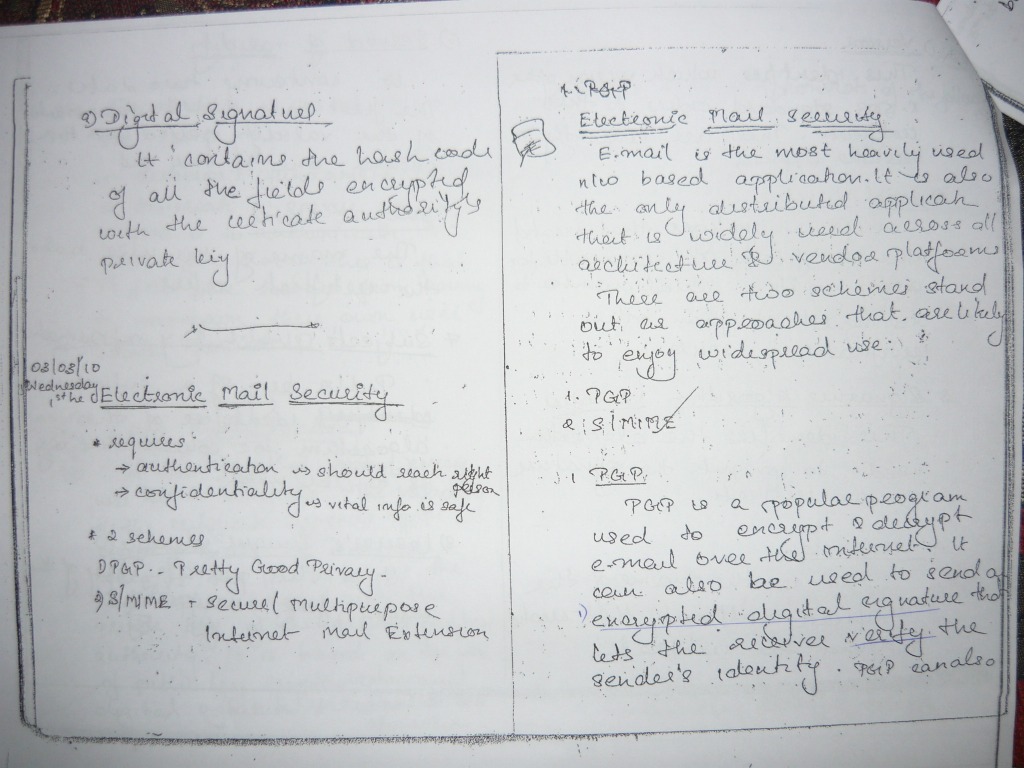 8) Digital Signature
It contains the hash code
of all the fields encrypted
with the certicate authority's
private key
03/03/10
Wednesday
1st he
Electronic Mail Security
* requires
→ authentication → should reach right
person
→ confidentiality → vital info is safe
* 2 schemes
1) PGP - Pretty Good Privacy.
2) S/MIME - Secure/ Multipurpose
Internet Mail Extension
1. PGP
Electronic Mail Security
E.mail is the most heavily used
n/w based application. It is also
the only distributed applicatn
that is widely used across all
architecture & vendor platforms
There are two schemes stand
out as approaches that are likely
to enjoy widespread use.
1. PGP
2. S/MIME
1. PGP.
PGP is a popular program
used to encrypt & decrypt
e.mail over the internet. It
can also be used to send a
1) encrypted digital signature that
lets the receiver verify the
sender's identity. PGP can also